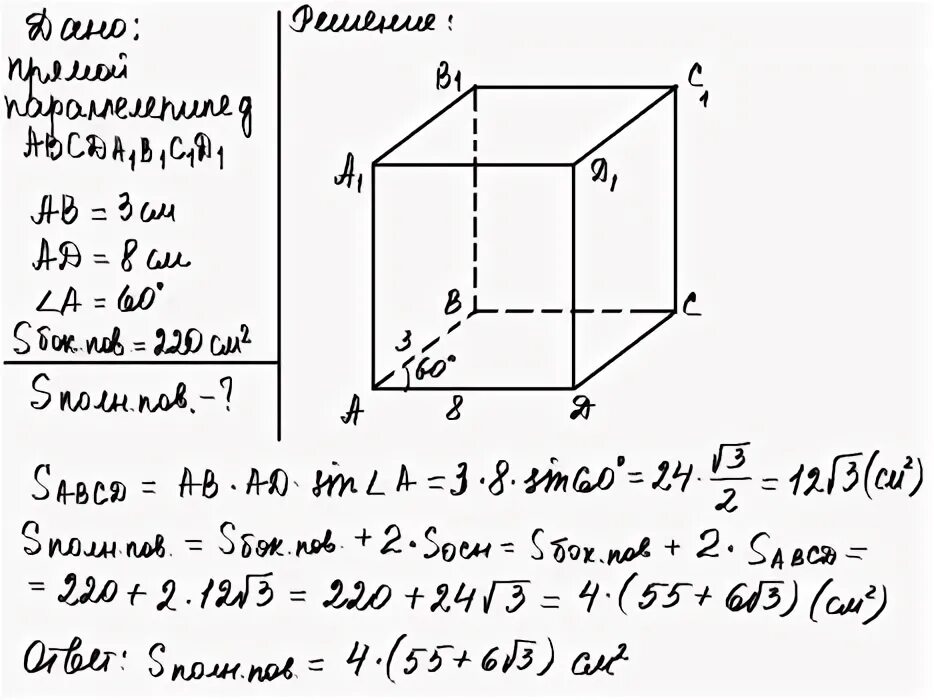 Дано:
прямой
параллелепипед
ABCDA₁B₁C₁D₁
AB = 3 см
AD = 8 см
∠A = 60°
Sбок.пов. = 220 см²
Sполн.пов. - ?
Решение:
B₁
C₁
A₁
D₁
B
C
3
60°
A
8
D
S_ABCD = AB · AD · sin∠A = 3 · 8 · sin60° = 24 · √3/2 = 12√3 (см²)
Sполн.пов. = Sбок.пов. + 2 · Sосн = Sбок.пов + 2 · S_ABCD =
= 220 + 2 · 12√3 = 220 + 24√3 = 4 · (55 + 6√3) (см²)
Ответ: Sполн.пов. = 4 · (55 + 6√3) см²